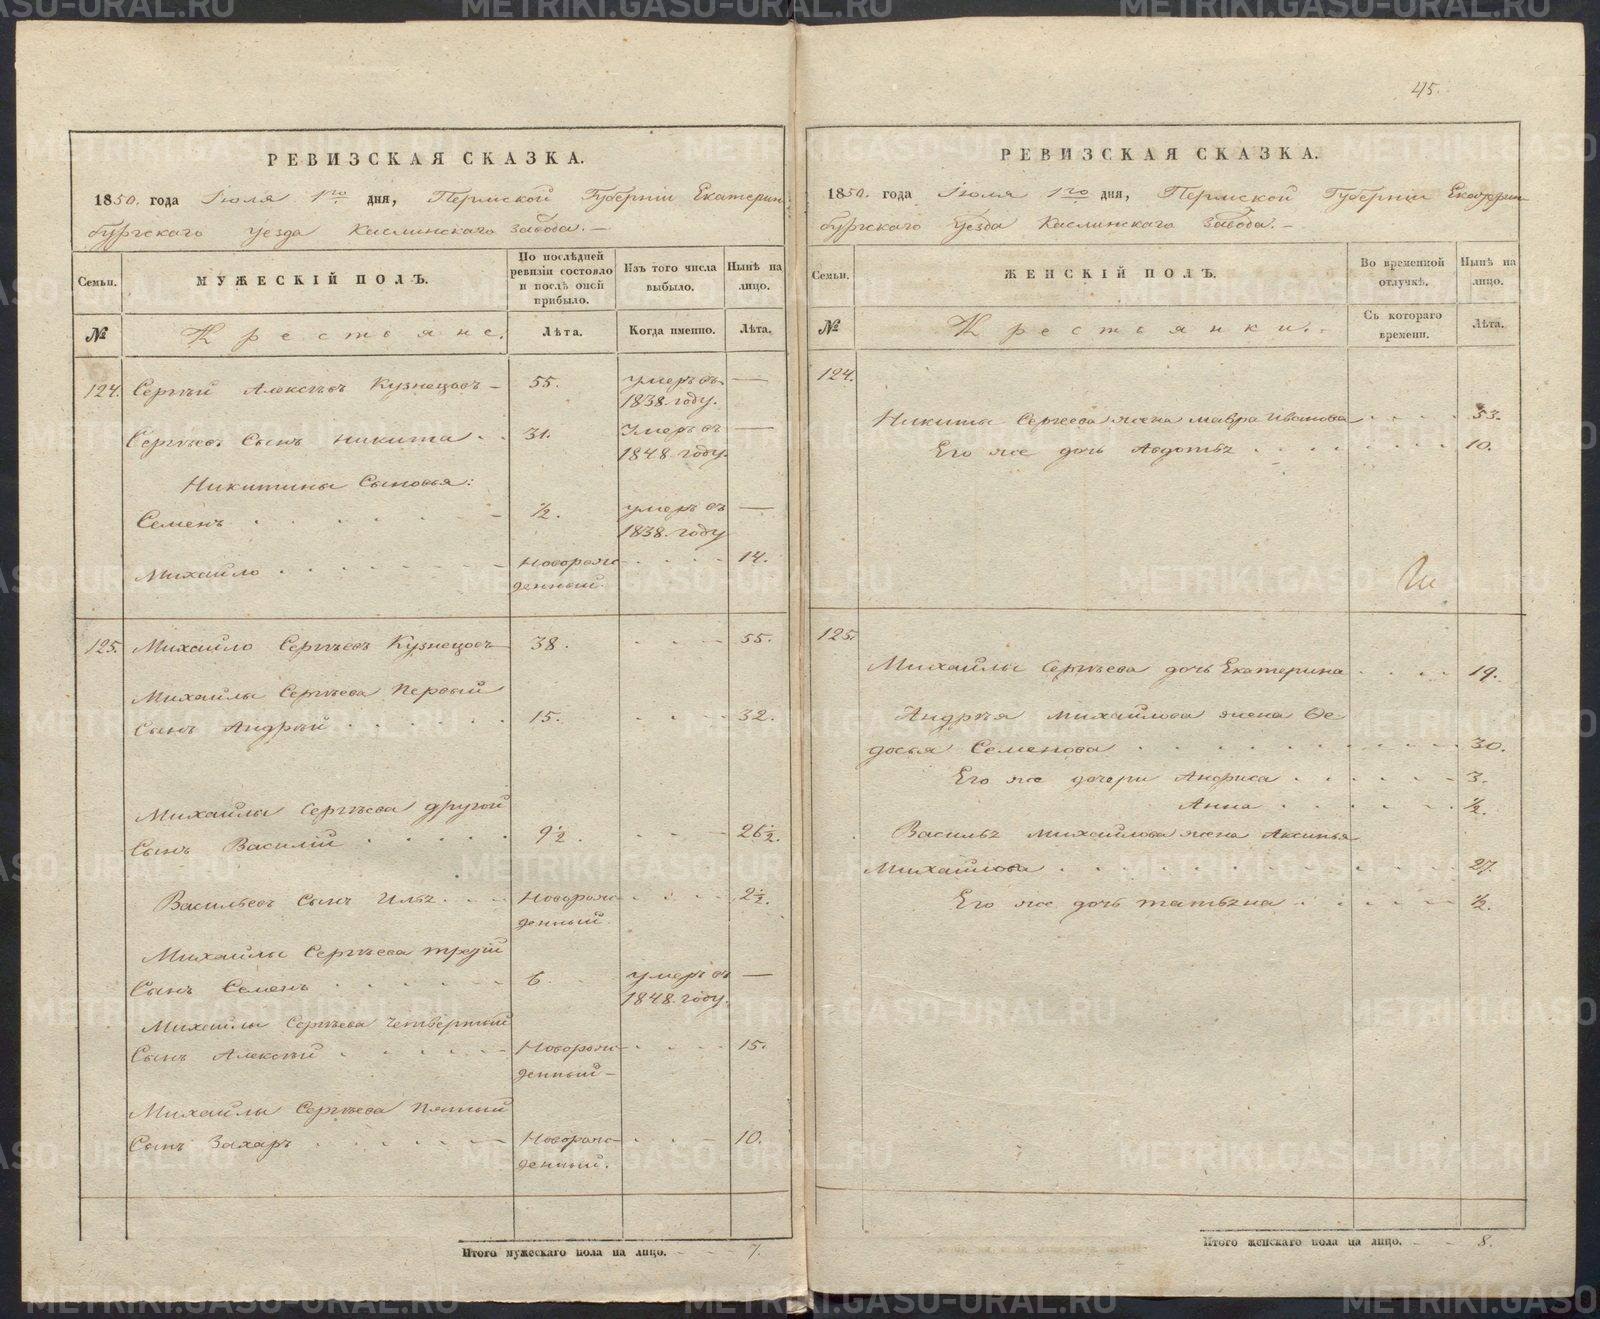 45.
РЕВИЗСКАЯ СКАЗКА.
1850. года Июля 1го дня, Пермской Губернiи Екатерин
бургскаго уезда Каслинскаго завода.
Семьи. МУЖЕСКIЙ ПОЛЪ. По послѣдней ревизiи состояло и послѣ оной прибыло. Изъ того числа выбыло. Нынѣ на лицо.
№ Крестьяне. Лѣта. Когда именно. Лѣта.
124. Сергѣй Алексѣевъ Кузнецовъ 55. умеръ въ —
1838. году.
Сергѣевъ Сынъ Никита 31. Умеръ въ —
1848. году.
Никитины Сыновья:
Семенъ ½. умеръ въ —
1838. году
Михайло Новорож- 14.
денный.
125. Михайло Сергѣевъ Кузнецовъ 38. 55.
Михайлы Сергѣева Первый
Сынъ Андрѣй 15. 32.
Михайлы Сергѣева другой
Сынъ Василiй 9½. 26½.
Васильевъ Сынъ Илья Новорож- 2½.
денный.
Михайлы Сергѣева третiй
Сынъ Семенъ 6. умеръ въ —
1848. году.
Михайлы Сергѣева четвертый
Сынъ Алексѣй Новорож- 15.
денный
Михайлы Сергѣева пятый
Сынъ Захаръ Новорож- 10.
денный.
Итого мужескаго пола на лицо. 7.
РЕВИЗСКАЯ СКАЗКА.
1850. года Июля 1го дня, Пермской Губернiи Екатерин
бургскаго уезда Каслинскаго завода.
Семьи. ЖЕНСКIЙ ПОЛЪ. Во временной отлучкѣ. Нынѣ на лицо.
№ Крестьянки. Съ котораго времени. Лѣта.
124.
Никиты Сергеева жена Мавра Иванова 53.
Его же дочь Авдотья 10.
125.
Михайлы Сергѣева дочь Екатерина 19.
Андрѣя Михайлова жена Ѳе
досья Семенова 30.
Его же дочери Анфиса 3.
Анна ½.
Василья Михайлова жена Аксинья
Михайлова 27.
Его же дочь Татьяна ½.
Итого женскаго пола на лицо. 8.
METRIKI.GASO-URAL.RU